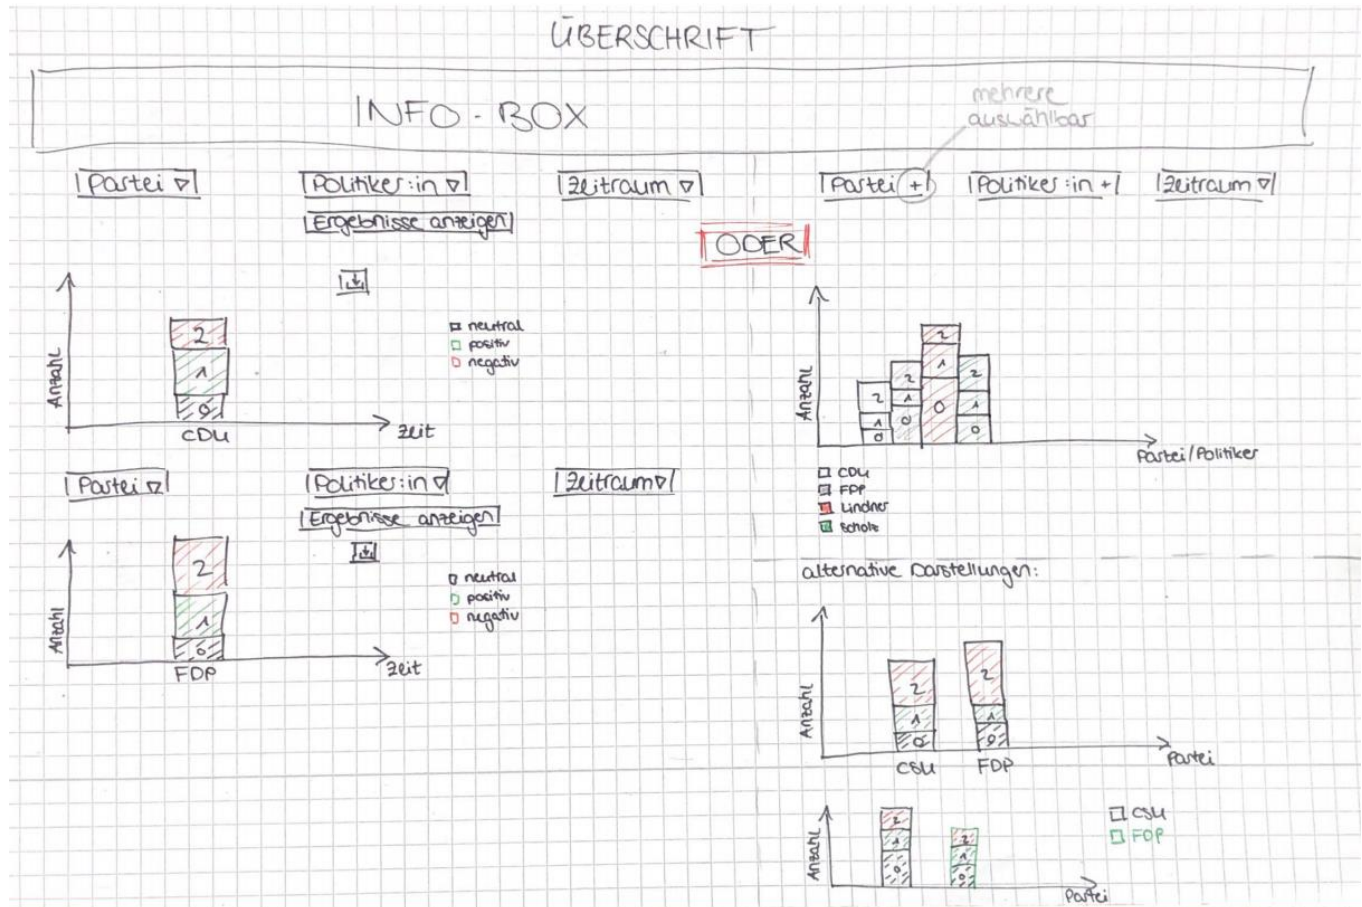 ÜBERSCHRIFT
INFO-BOX
mehrere
auswählbar
Partei ▽
Politiker:in ▽
Zeitraum ▽
Ergebnisse anzeigen
Partei +
Politiker:in +
Zeitraum ▽
ODER
Anzahl
2
1
0
CDU
Zeit
neutral
positiv
negativ
Partei ▽
Politiker:in ▽
Zeitraum ▽
Ergebnisse anzeigen
Anzahl
2
1
0
FDP
Zeit
neutral
positiv
negativ
Anzahl
2
1
0
2
1
0
2
1
0
2
1
0
Partei/Politiker
CDU
FDP
Lindner
Scholz
alternative Darstellungen:
Anzahl
2
1
0
2
1
0
CSU
FDP
Partei
Anzahl
2
1
0
2
1
0
Partei
CSU
FDP